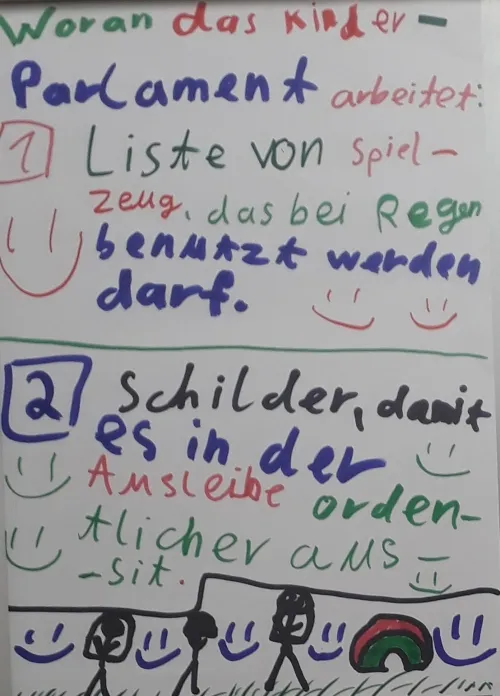 Woran das Kinder-
Parlament arbeitet:
1 Liste von Spiel-
zeug, das bei Regen
benutzt werden
darf.
2 Schilder, damit
es in der
Ausleibe orden-
tlicher aus-
-sit.